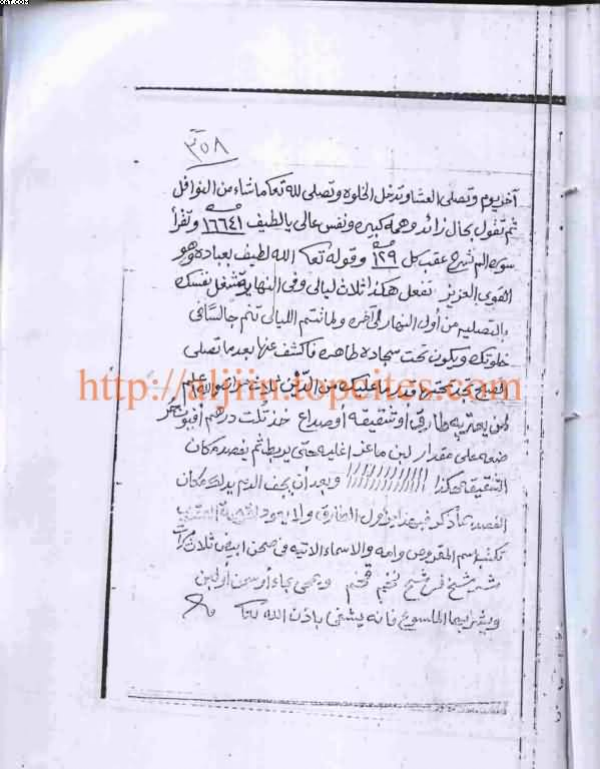 ٣٥٨
آخر يوم وتصلى العشا وتدخل الخلوه وتصلى لله تعا ما شاء من النوافل
ثم تقول بحال زائد وهمه كبيره ونفس عالى يا لطيف ١٦٦٤١ وتقرأ
سورة الم نشرح عقب كل ١٢٩ وقوله تعا الله لطيف بعباده وهو
القوى العزيز تفعل هكذا ثلاث ليالى وفى النهار تشغل نفسك
بالتصليه من أول النهار الى آخره ولما تتم الليالى تنم جالسا فى
خلوتك ويكون تحت سجاده طاهره فاكشف عنها بعد ما تصلى
الصبح ما عليك من الدين ثلاث مرار والله اعلم
http://aljiin.topcites.com
لمن يعتريه طارق أو شقيقه أو صداع خذ ثلث درهم أفيون
ضعه على مقدار لبن ماعز اغليه حتى يربط ثم يفصد مكان
الشقيقه هكذا وبعد أن يجف الدم يدلك مكان
الفصد بما ذكر يزول الطارق ولا يعود
تكتب اسم المقروص وامه والاسماء الاتيه فى صحن ابيض ثلاث مرات
ويمحى بماء أو سمن أو لبن
ويشربها الملسوع فانه يشفى باذن الله تعا